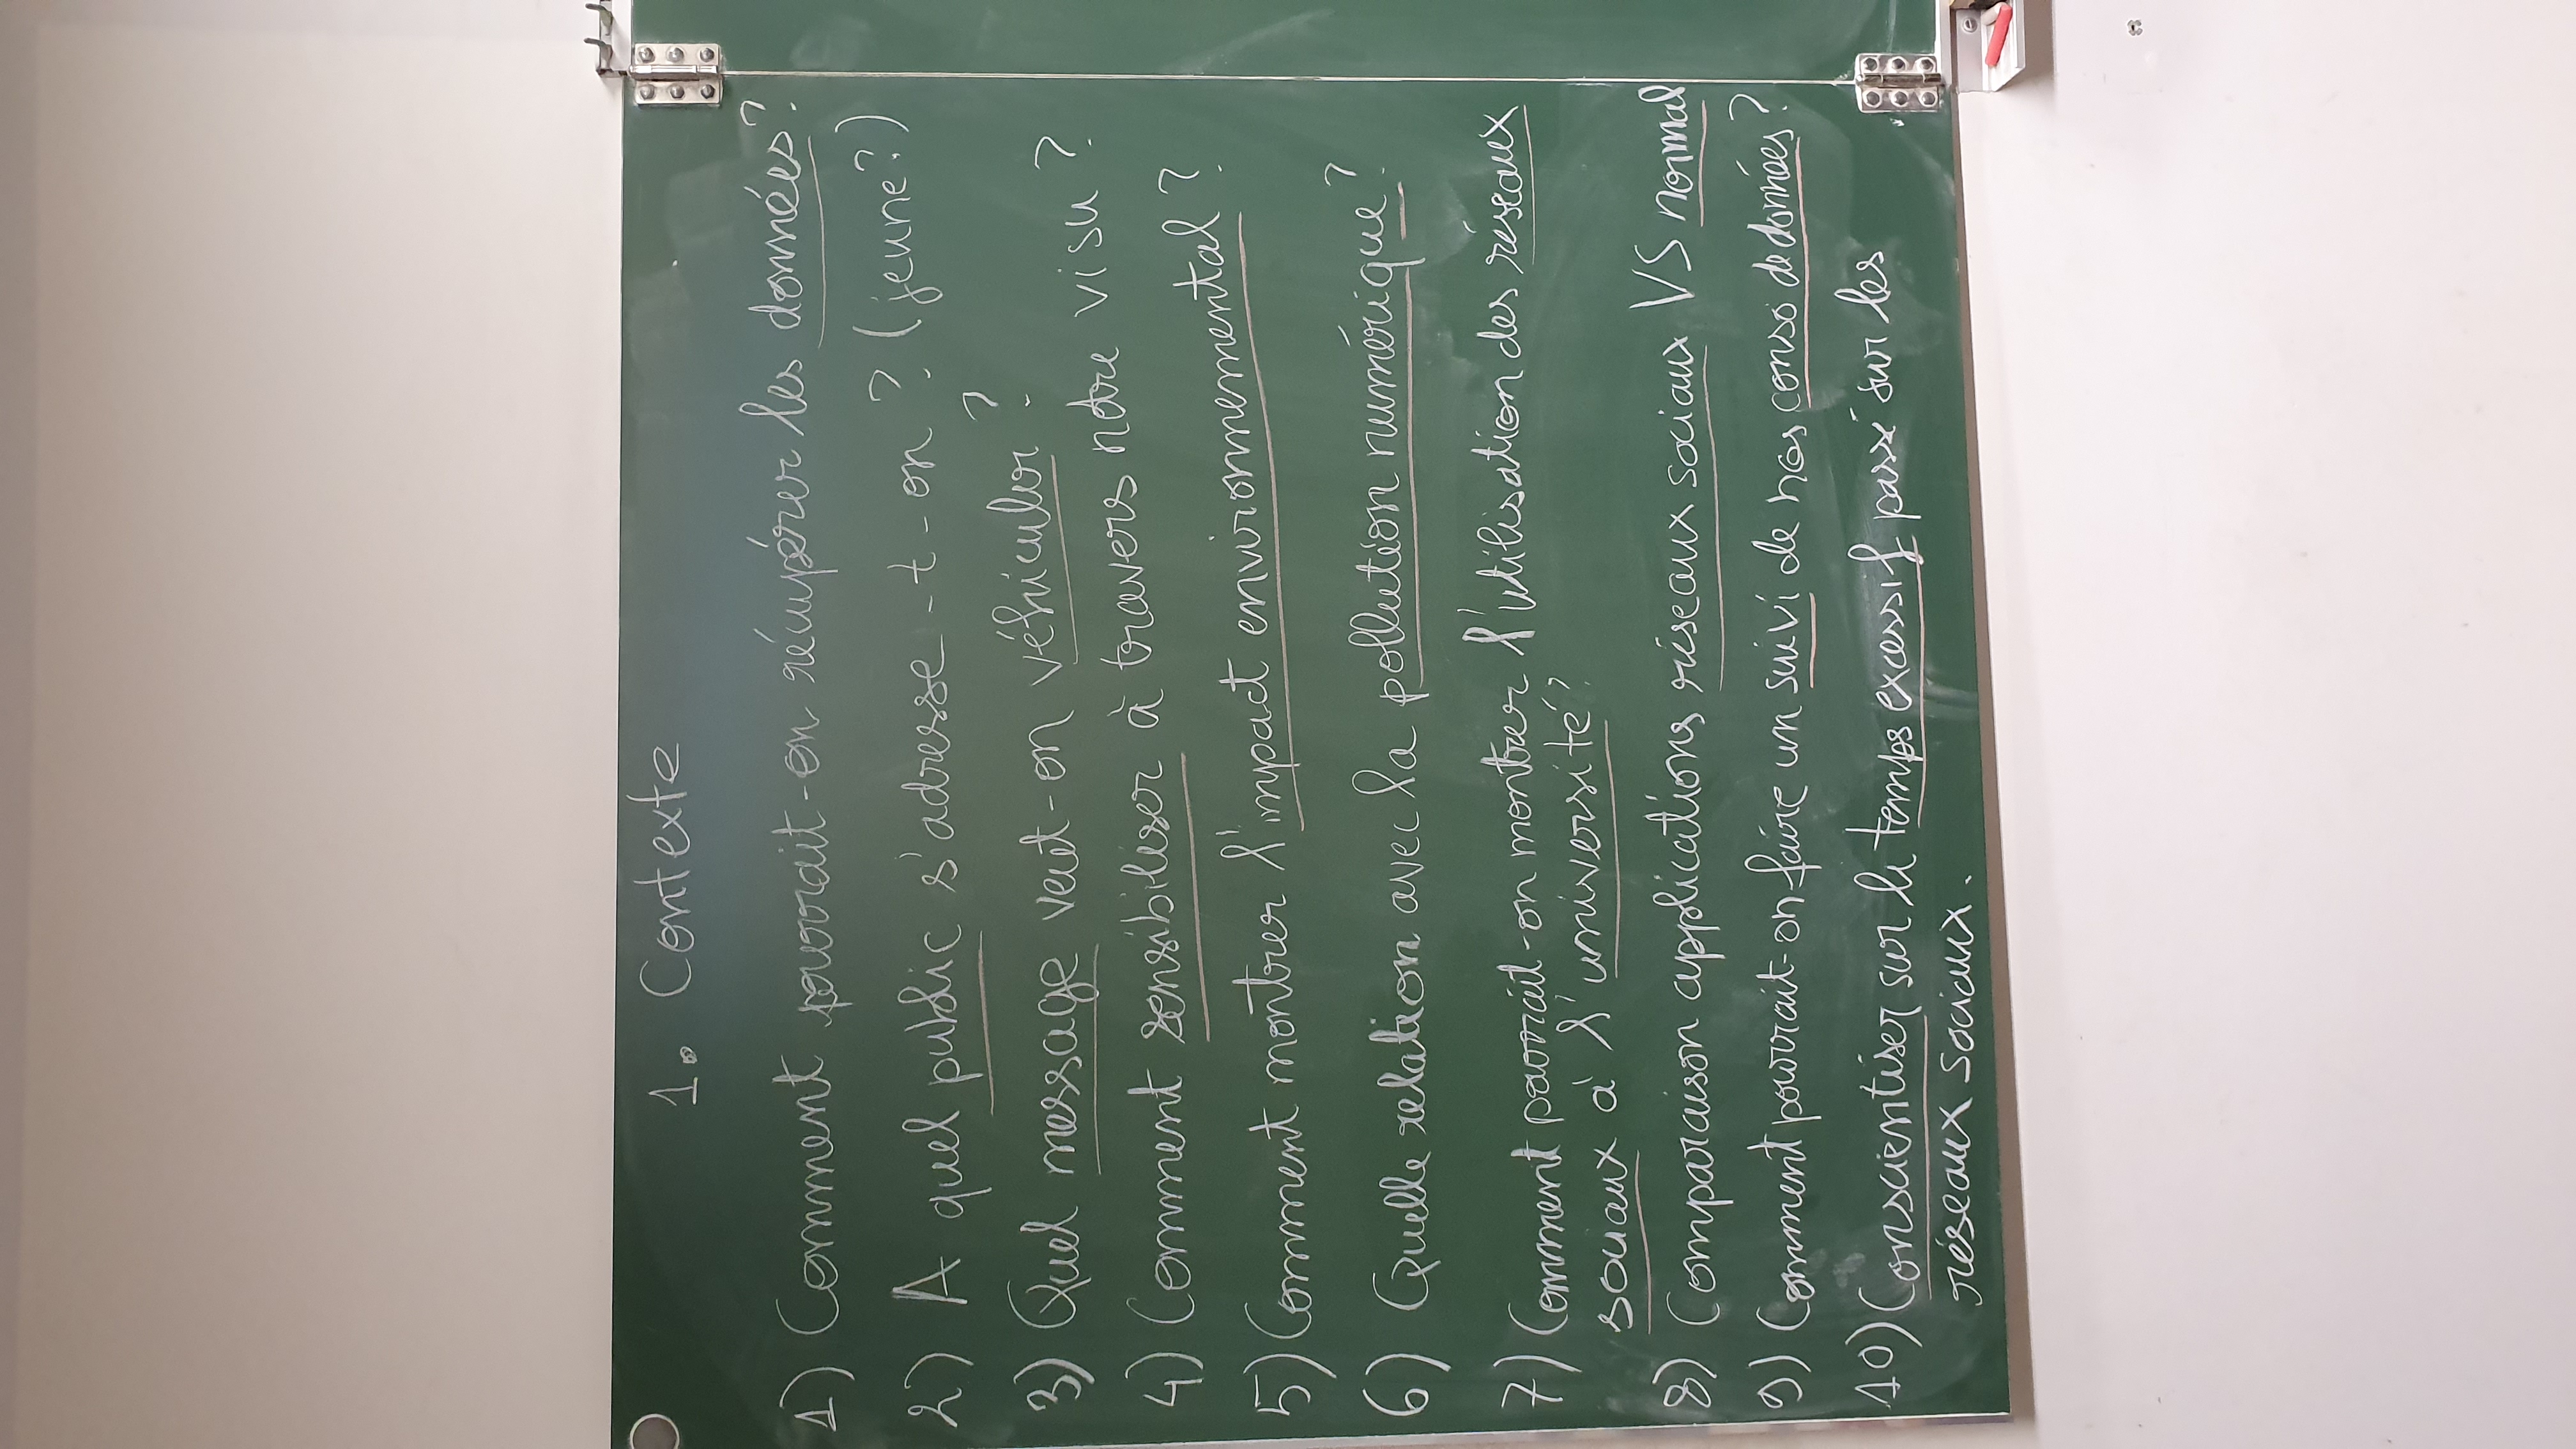 1. Contexte
1) Comment pourrait-on récupérer les données?
2) A quel public s'adresse-t-on ? (jeune?)
3) Quel message veut-on véhiculer ?
4) Comment sensibiliser à travers notre visu ?
5) Comment montrer l'impact environnemental ?
6) Quelle relation avec la pollution numérique ?
7) Comment pourrait-on montrer l'utilisation des réseaux
sociaux à l'université ?
8) Comparaison applications réseaux sociaux VS normal
9) Comment pourrait-on faire un suivi de nos conso de données ?
10) Conscientiser sur le temps excessif passé sur les
réseaux sociaux.